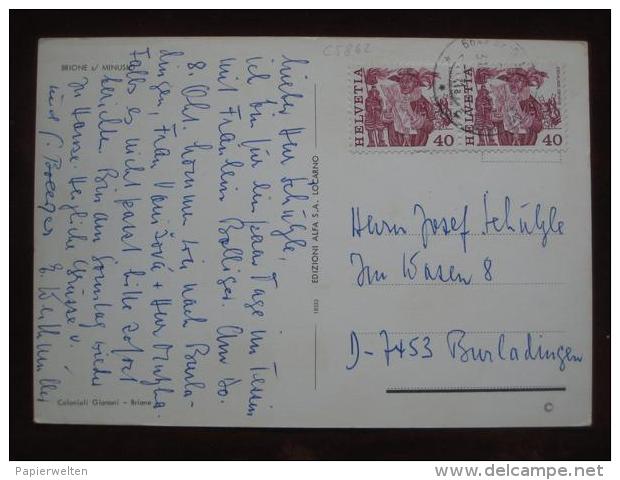 C5862
BRIONE s/ MINUSIO
Lieber Herr Schüzle,
ich bin für ein paar Tage im Tessin
mit Fräulein Bolliger. Am Do.
8. Okt. kommen wir nach Burla-
dingen, Frau + Herr
Falls es nicht passt bitte sofort
berichten. Bin am Sonntag wieder
zu Hause. Herzliche Grüsse v.
und
E.
Colonieli Gianoni - Brione
EDIZIONI ALFA S.A. LOCARNO
18353
HELVETIA
40
HELVETIA
40
Herrn Josef Schüzle
Im Wasen 8
D-7453 Burladingen
©
Papierwelten
www.delcampe.net